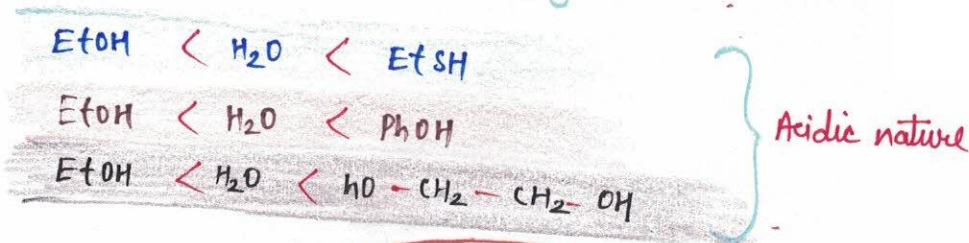 EtOH < H₂O < EtSH
EtOH < H₂O < PhOH
EtOH < H₂O < hO - CH₂ - CH₂ - OH
Acidic nature